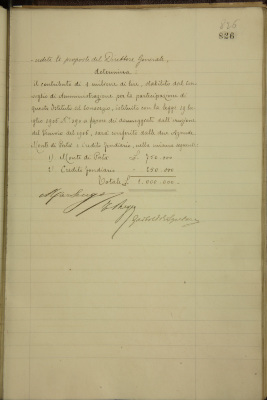 826
826
udite le proposte del Direttore Generale,
determina
Il contributo di 1 milione di lire, stabilito dal Con
siglio di Amministrazione per la partecipazione di
questo Istituto al Consorzio, istituito con la legge 19 lu
glio 1906 N. 390 a favore dei danneggiati dall'eruzione
del Vesuvio del 1906, sarà conferito dalle due Aziende
Monte di Pietà e Credito Fondiario, nella misura seguente:
1) Monte di Pietà £ 750.000
2) Credito Fondiario 250.000
Totale £ 1.000.000.